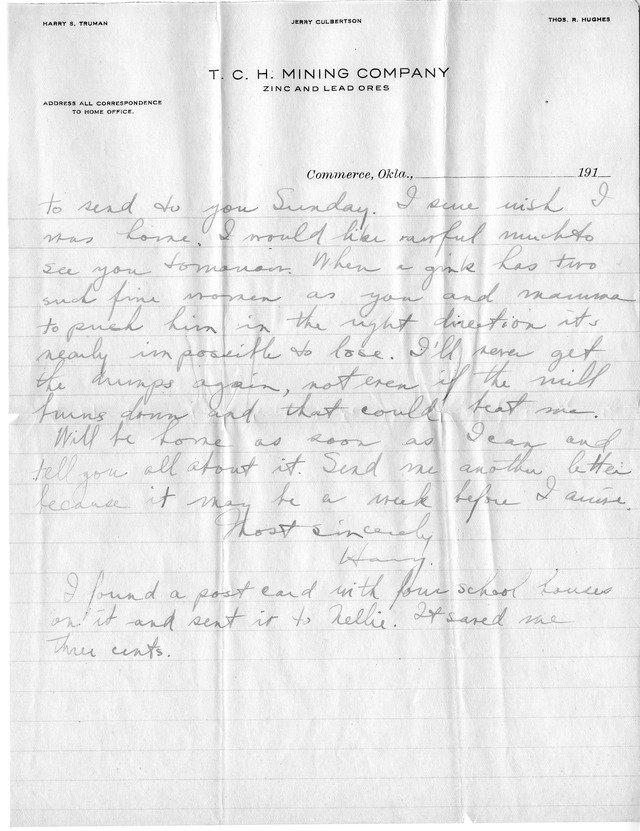 HARRY S. TRUMAN JERRY CULBERTSON THOS. R. HUGHES
T. C. H. MINING COMPANY
ZINC AND LEAD ORES
ADDRESS ALL CORRESPONDENCE
TO HOME OFFICE.
Commerce, Okla., 191
to send to you Sunday. I sure wish I
was home. I would like awful much to
see you tomorrow. When a gink has two
such fine women as you and mamma
to push him in the right direction its
nearly impossible to lose. I'll never get
the dumps again, not even if the mill
burns down and that could beat me.
Will be home as soon as I can and
tell you all about it. Send me another letter
because it may be a week before I arrive.
Most sincerely
Harry.
I found a post card with four school houses
on it and sent it to Nellie. It saved me
three cents.